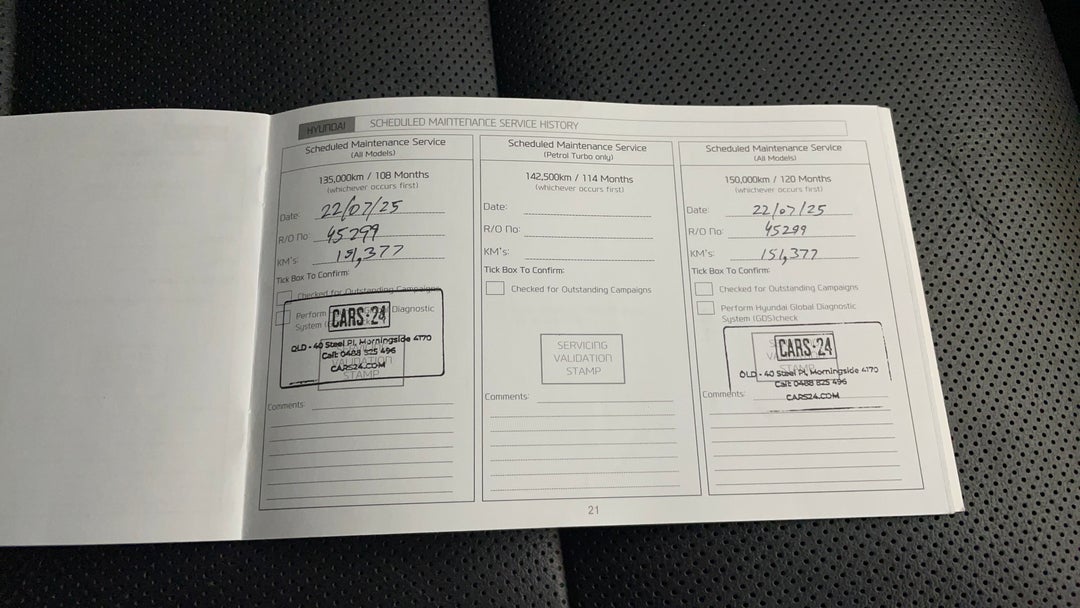 HYUNDAI SCHEDULED MAINTENANCE SERVICE HISTORY
Scheduled Maintenance Service
(All Models)
135,000km / 108 Months
(whichever occurs first)
Date: 22/07/25
R/O No: 45299
KM's: 151,377
Tick Box To Confirm:
Checked for Outstanding Campaigns
Perform Diagnostic
System
CARS24
QLD - 40 Steel Pl, Morningside 4170
Call: 0488 825 496
CARS24.COM
SERVICING
VALIDATION
STAMP
Comments:
Scheduled Maintenance Service
(Petrol Turbo only)
142,500km / 114 Months
(whichever occurs first)
Date:
R/O No:
KM's:
Tick Box To Confirm:
Checked for Outstanding Campaigns
SERVICING
VALIDATION
STAMP
Comments:
Scheduled Maintenance Service
(All Models)
150,000km / 120 Months
(whichever occurs first)
Date: 22/07/25
R/O No: 45299
KM's: 151,377
Tick Box To Confirm:
Checked for Outstanding Campaigns
Perform Hyundai Global Diagnostic
System (GDS)check
CARS24
STAMP
QLD - 40 Steel Pl, Morningside 4170
Call: 0488 825 496
CARS24.COM
Comments:
21